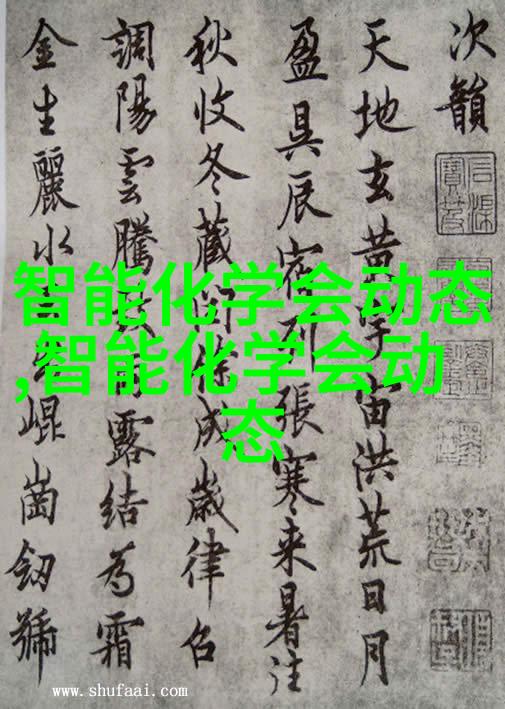 次韻
天地玄黄宇宙洪荒日月
盈昃辰宿列張寒来暑往
秋收冬藏閏餘成歳律召
調陽雲騰雨露結為霜
金生麗水崐崗劒號
智能化学会动态
,智能化学会动
态
www.shufaai.com